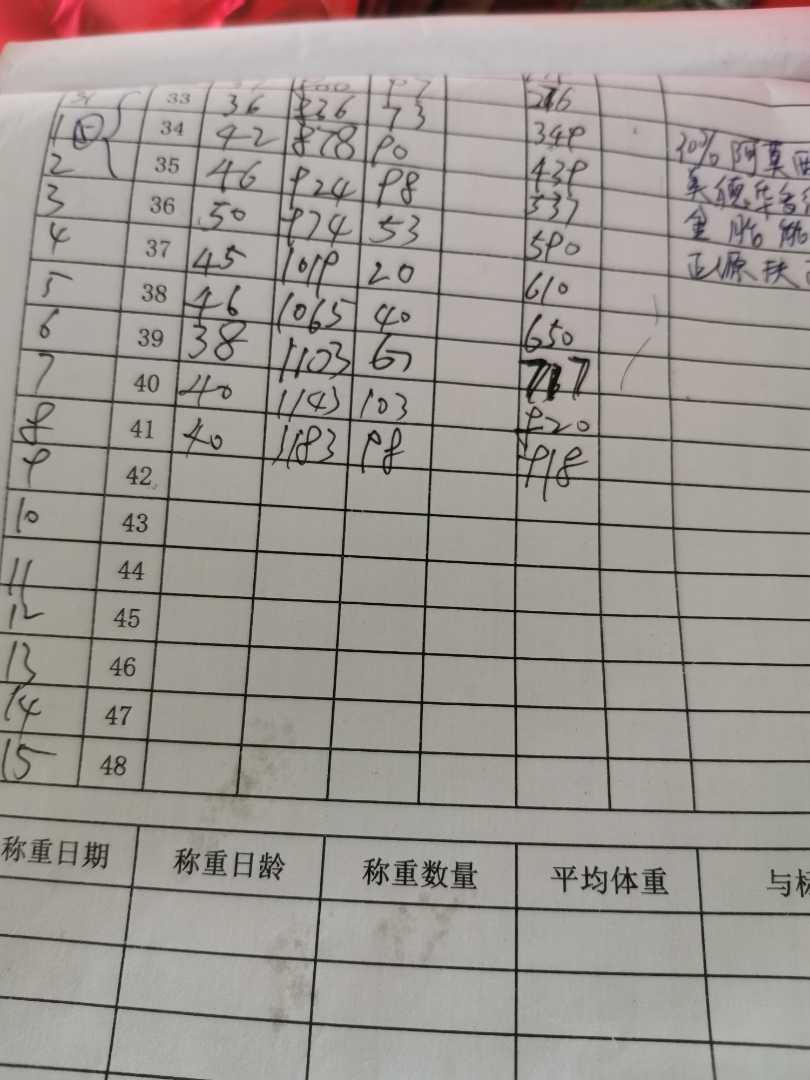 31 33 36 836 73 276
1 34 42 878 90 349 30%阿莫西
2 35 46 924 98 439
3 36 50 974 53 537
4 37 45 1019 20 590 正源扶
5 38 46 1065 40 610
6 39 38 1103 67 650
7 40 40 1143 103 717
8 41 40 1183 98 820
9 42 918
10 43
11 44
12 45
13 46
14 47
15 48
称重日期 称重日龄 称重数量 平均体重 与标